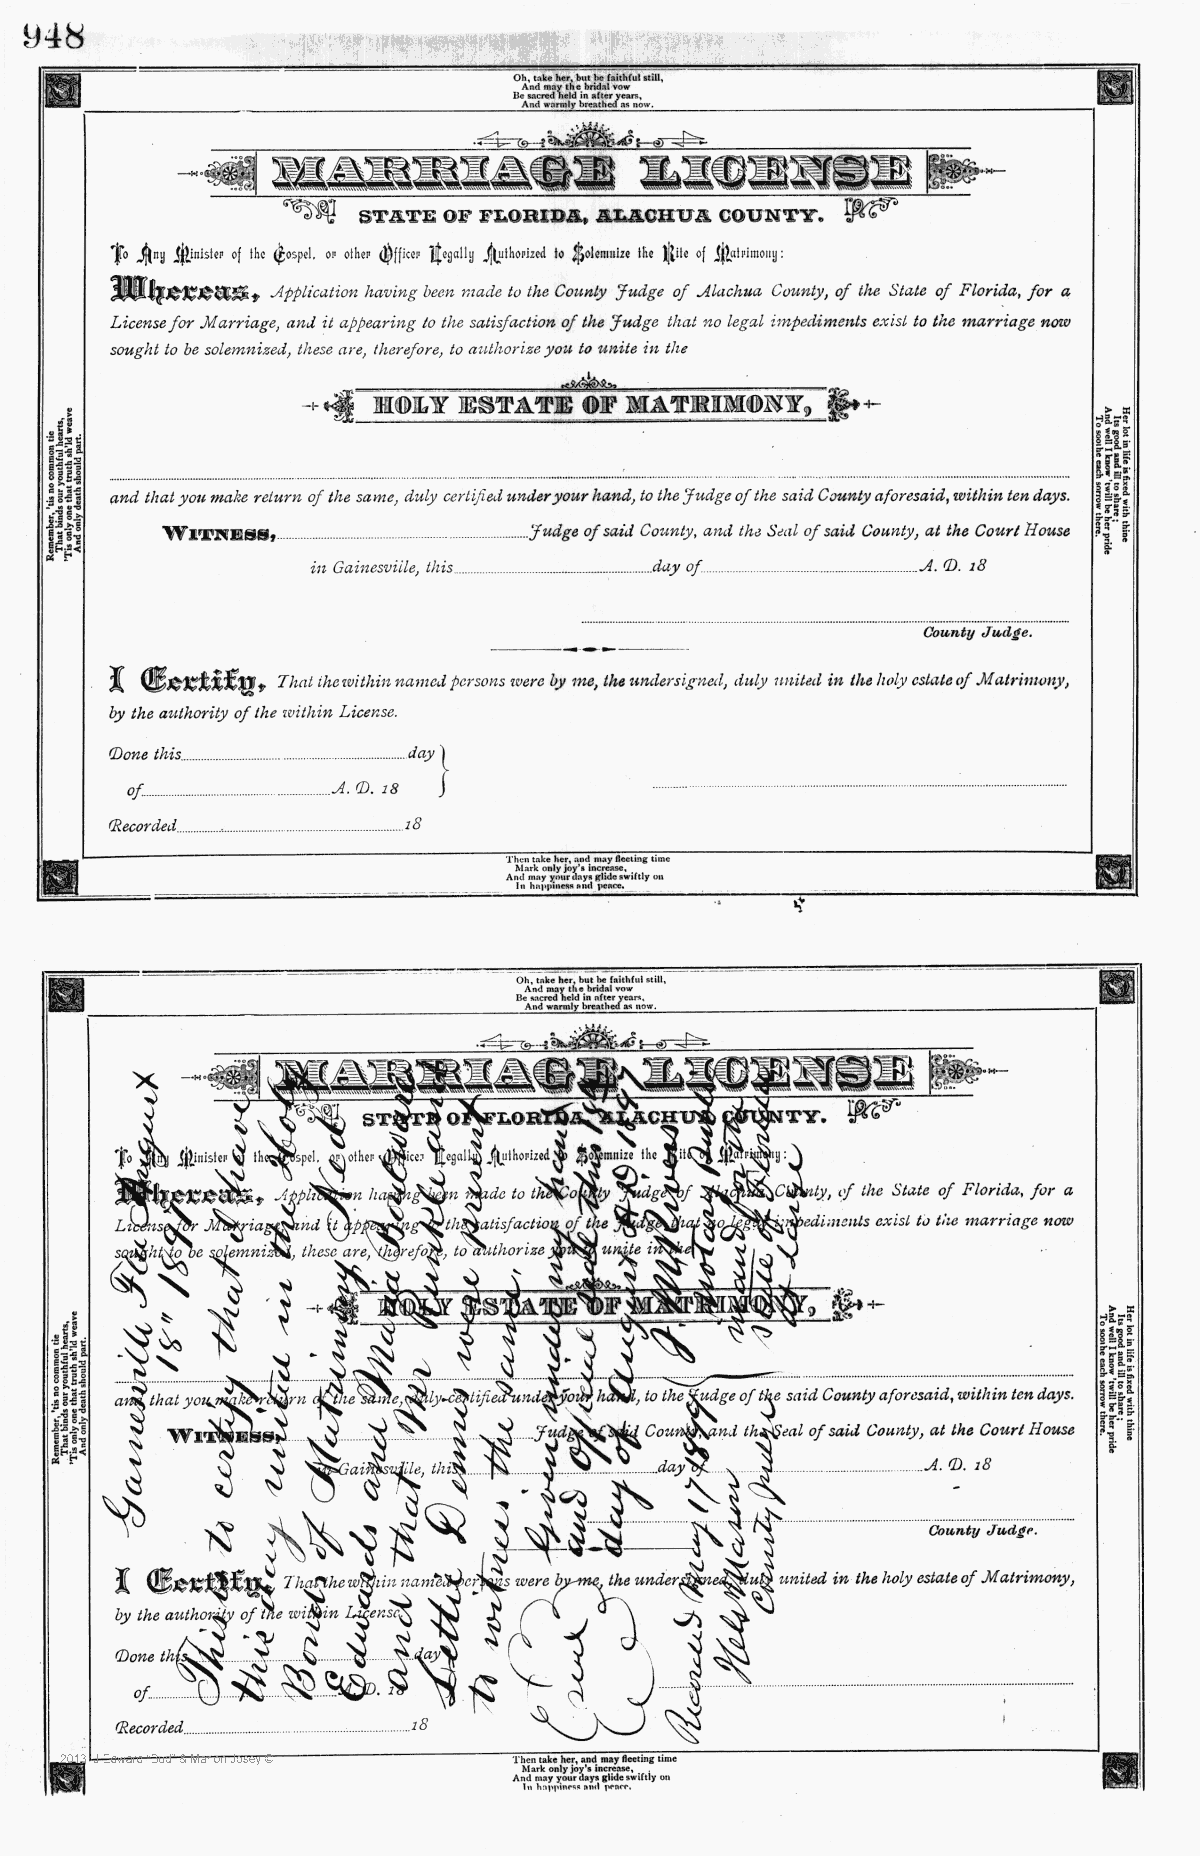 948
Oh, take her, but be faithful still,
And may the bridal vow
Be sacred held in after years,
And warmly breathed as now.
MARRIAGE LICENSE
STATE OF FLORIDA, ALACHUA COUNTY.
To Any Minister of the Gospel, or other Officer Legally Authorized to Solemnize the Rite of Matrimony:
Whereas, Application having been made to the County Judge of Alachua County, of the State of Florida, for a
License for Marriage, and it appearing to the satisfaction of the Judge that no legal impediments exist to the marriage now
sought to be solemnized, these are, therefore, to authorize you to unite in the
HOLY ESTATE OF MATRIMONY,
and that you make return of the same, duly certified under your hand, to the Judge of the said County aforesaid, within ten days.
WITNESS, Judge of said County, and the Seal of said County, at the Court House
in Gainesville, this day of A. D. 18
County Judge.
I Certify, That the within named persons were by me, the undersigned, duly united in the holy estate of Matrimony,
by the authority of the within License.
Done this day
of A. D. 18
Recorded 18
Remember, 'tis no common tie
That binds our youthful hearts,
'Tis only one that truth sh'ld weave
And only death should part.
Her lot in life is fixed with thine
Its good and ill to share;
And well I know 'twill be her pride
To soothe each sorrow there.
Then take her, and may fleeting time
Mark only joy's increase,
And may your days glide swiftly on
In happiness and peace.
Oh, take her, but be faithful still,
And may the bridal vow
Be sacred held in after years,
And warmly breathed as now.
MARRIAGE LICENSE
STATE OF FLORIDA, ALACHUA COUNTY.
To Any Minister of the Gospel, or other Officer Legally Authorized to Solemnize the Rite of Matrimony:
Whereas, Application having been made to the County Judge of Alachua County, of the State of Florida, for a
License for Marriage, and it appearing to the satisfaction of the Judge that no legal impediments exist to the marriage now
sought to be solemnized, these are, therefore, to authorize you to unite in the
HOLY ESTATE OF MATRIMONY,
and that you make return of the same, duly certified under your hand, to the Judge of the said County aforesaid, within ten days.
WITNESS, Judge of said County, and the Seal of said County, at the Court House
in Gainesville, this day of A. D. 18
County Judge.
I Certify, That the within named persons were by me, the undersigned, duly united in the holy estate of Matrimony,
by the authority of the within License.
Done this day
of A. D. 18
Recorded 18
Gainesville Fla August
18" 1897
This is to certify that I have
this day united in the Holy
Bonds of Matrimony Ned
Edwards and Maria
and that Wer
Lettie Dennis were present
to witness the same.
Given under my hand
and official seal this
day of August AD 1897
J. M. Rivers
Notary Public
in and for the
State of Florida
at large
Seal
Recorded May 17 189
County Judge
Remember, 'tis no common tie
That binds our youthful hearts,
'Tis only one that truth sh'ld weave
And only death should part.
Her lot in life is fixed with thine
Its good and ill to share;
And well I know 'twill be her pride
To soothe each sorrow there.
Then take her, and may fleeting time
Mark only joy's increase,
And may your days glide swiftly on
In happiness and peace.
2013 J Edward "Bud" & Marion Josey ©